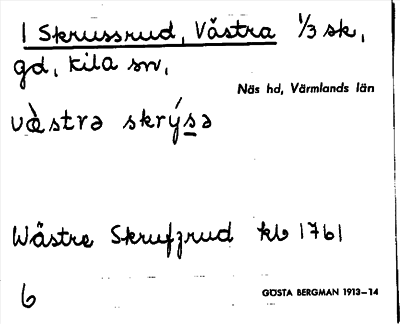 1 Skrussrud, Västra 1/3 sk,
gd, Kila sn,
Näs hd, Värmlands län
væ̀stra skrýsə
Wästre Skrufzrud kb 1761
6
GÖSTA BERGMAN 1913–14